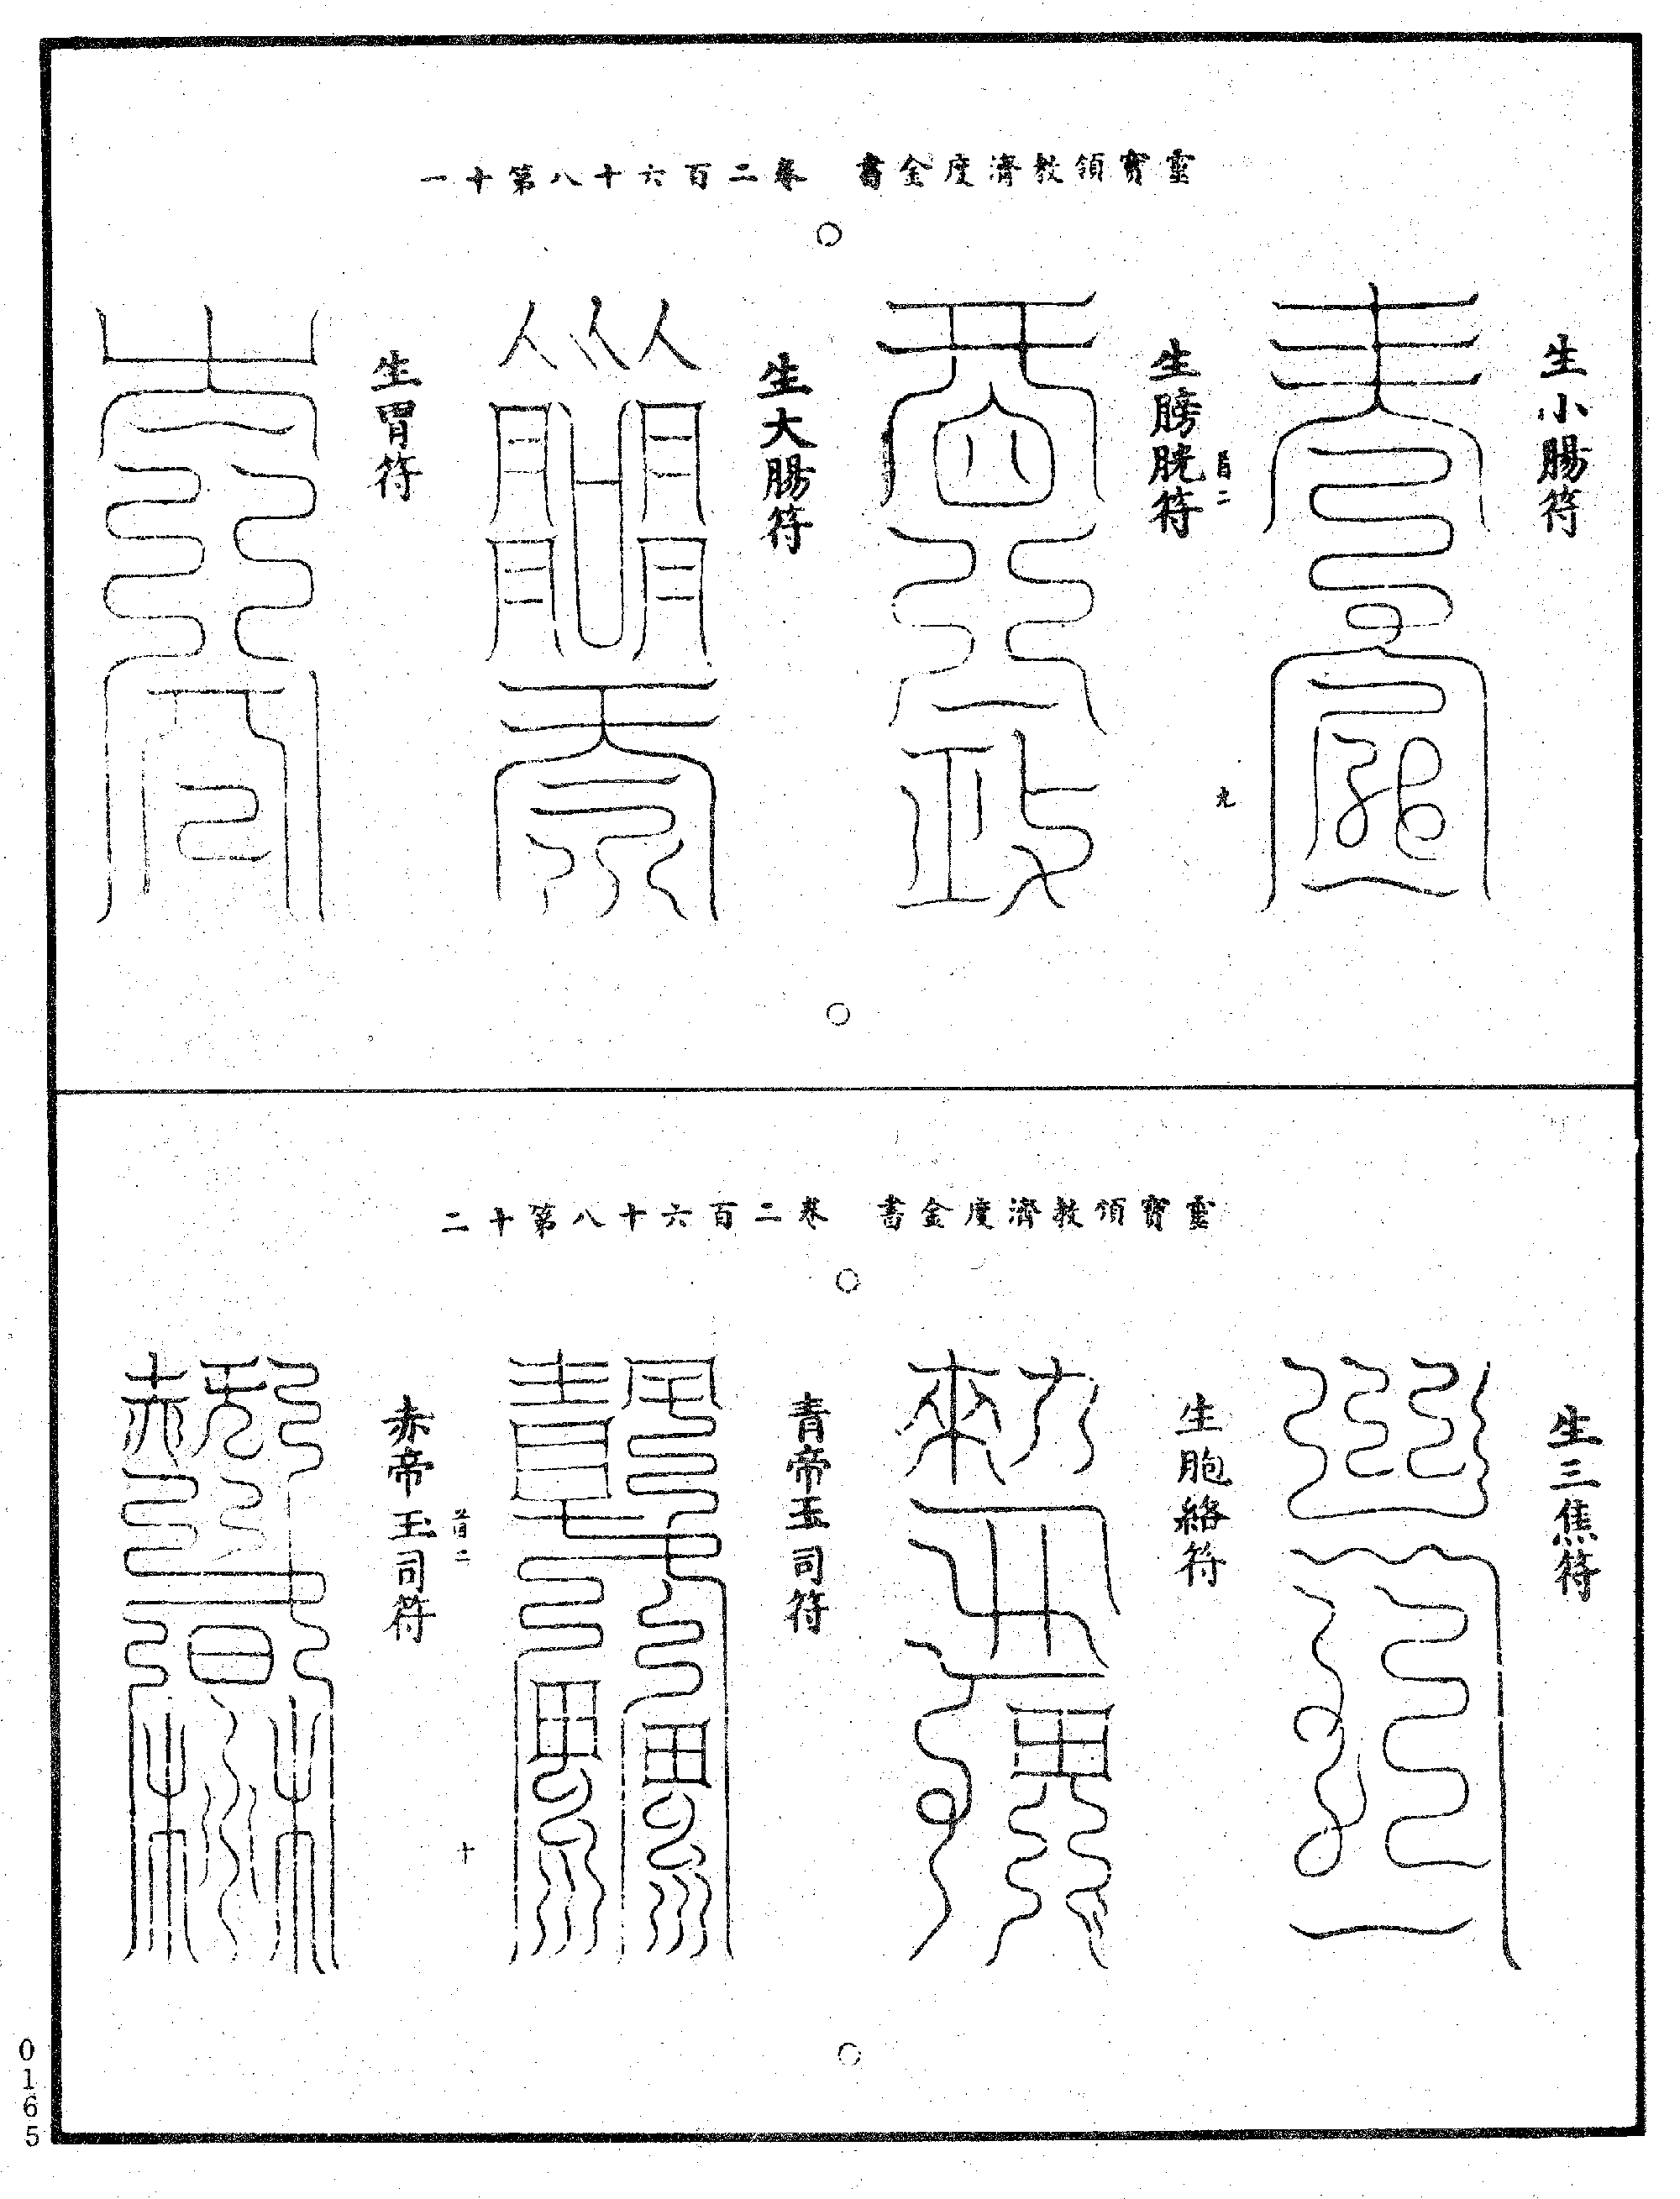 靈寶領教濟度金書 卷二百六十八第十一
生小腸符
九
生膀胱符
生大腸符
生胃符
靈寶領教濟度金書 卷二百六十八第十二
生三焦符
生胞絡符
青帝玉司符
十
赤帝玉司符
0165